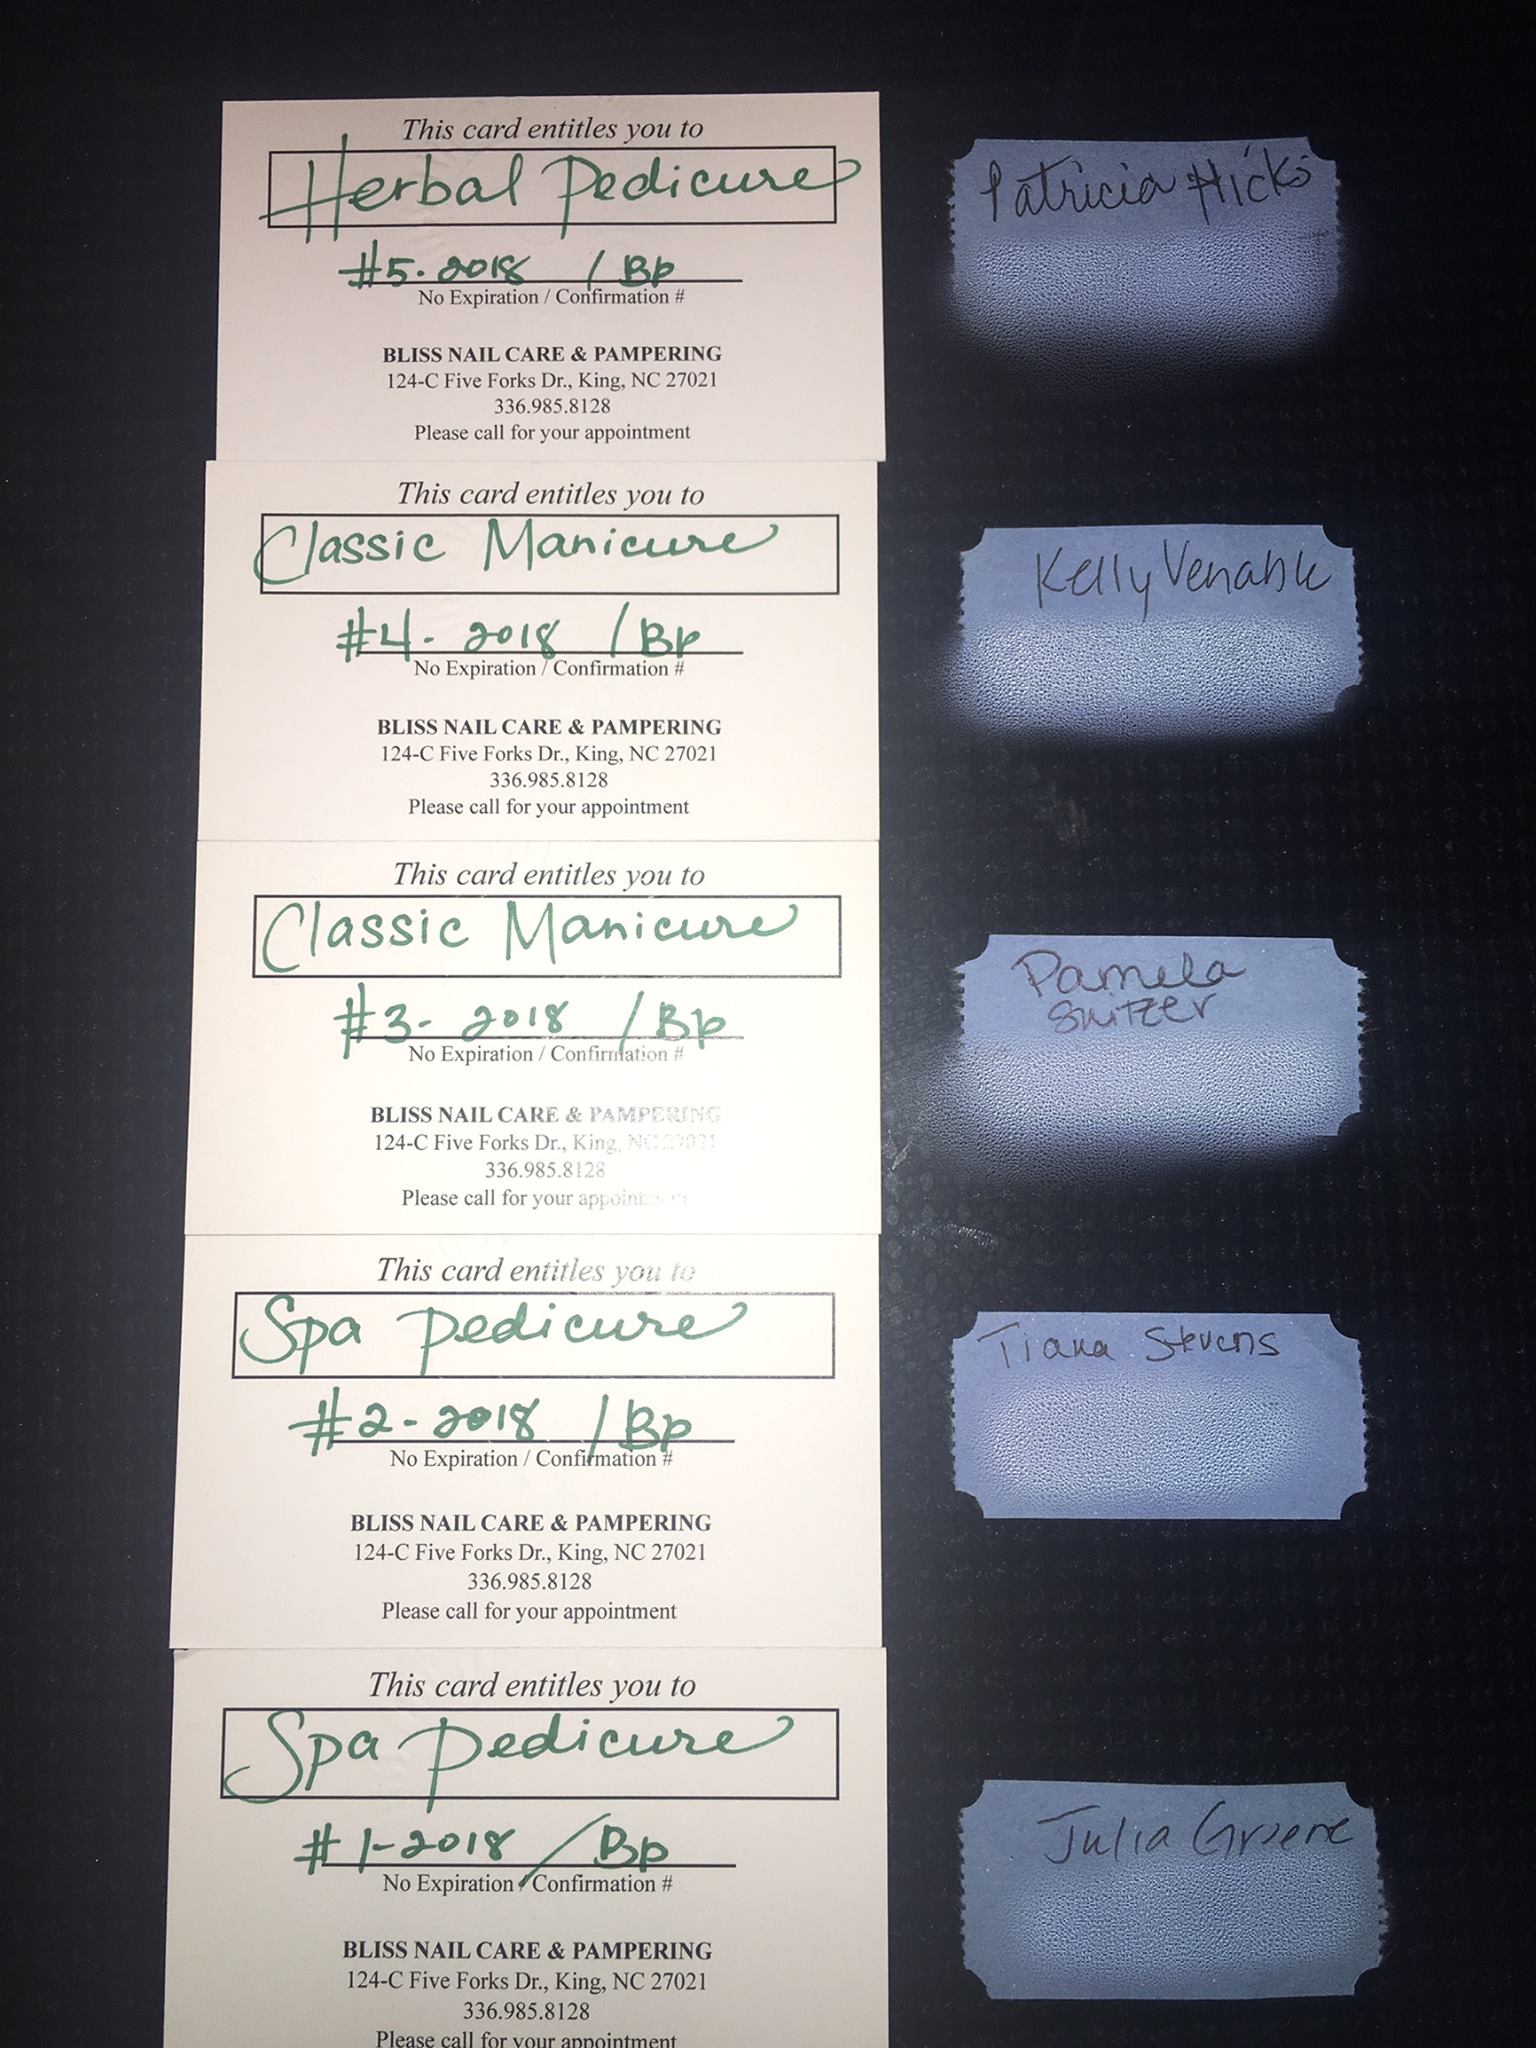 This card entitles you to
Herbal Pedicure
#5-2018 / Bp
No Expiration / Confirmation #
BLISS NAIL CARE & PAMPERING
124-C Five Forks Dr., King, NC 27021
336.985.8128
Please call for your appointment
Patricia Hicks
This card entitles you to
Classic Manicure
#4-2018 / Bp
No Expiration / Confirmation #
BLISS NAIL CARE & PAMPERING
124-C Five Forks Dr., King, NC 27021
336.985.8128
Please call for your appointment
Kelly Venable
This card entitles you to
Classic Manicure
#3-2018 / Bp
No Expiration / Confirmation #
BLISS NAIL CARE & PAMPERING
124-C Five Forks Dr., King, NC 27021
336.985.8128
Please call for your appointment
Pamela
Snitzer
This card entitles you to
Spa Pedicure
#2-2018 / Bp
No Expiration / Confirmation #
BLISS NAIL CARE & PAMPERING
124-C Five Forks Dr., King, NC 27021
336.985.8128
Please call for your appointment
Tiana Stevens
This card entitles you to
Spa Pedicure
#1-2018 / Bp
No Expiration / Confirmation #
BLISS NAIL CARE & PAMPERING
124-C Five Forks Dr., King, NC 27021
336.985.8128
Please call for your appointment
Julia Greene